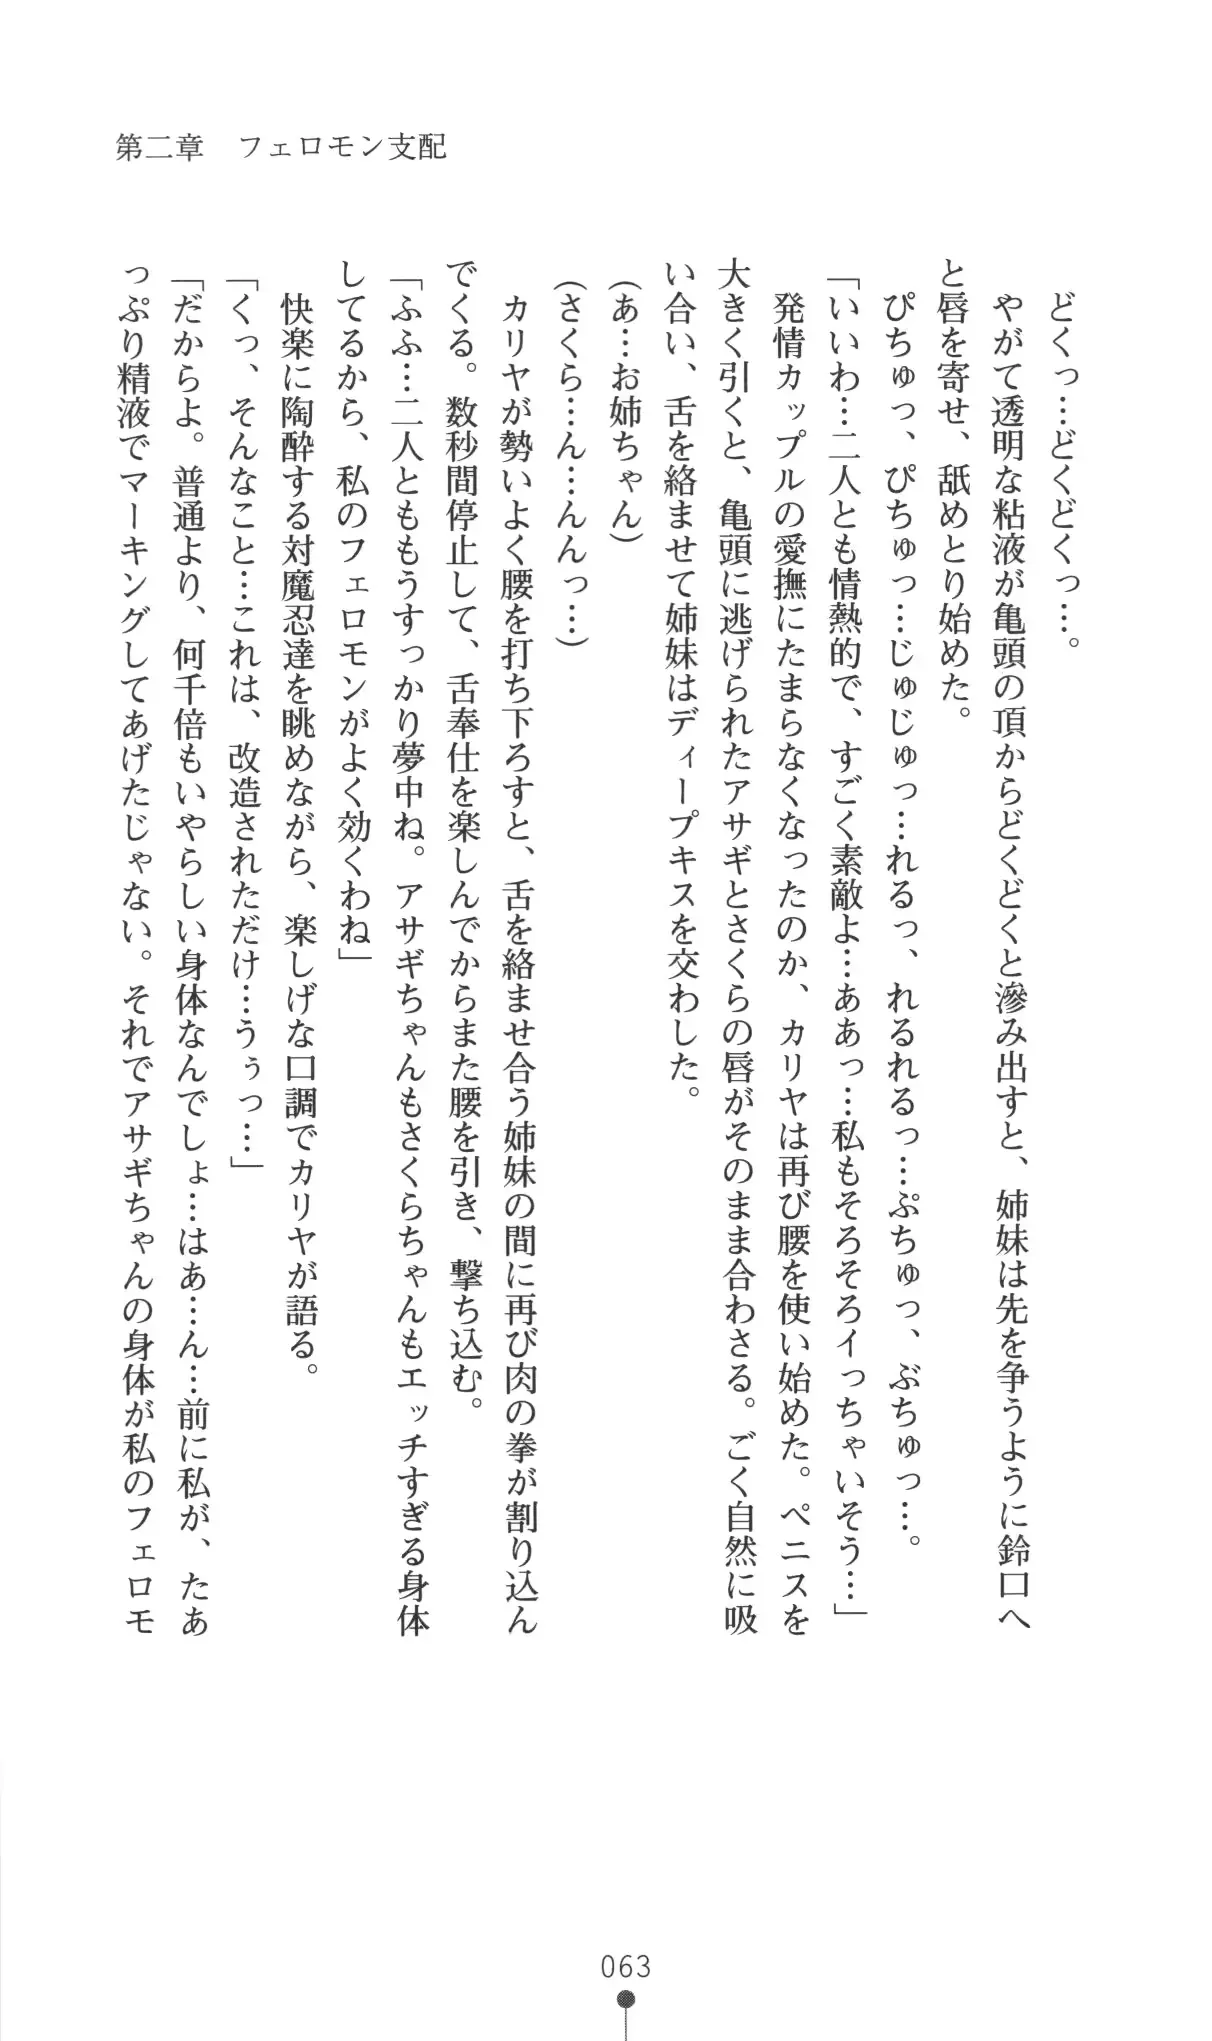 第二章　フェロモン支配
どくっ…どくどくっ…。
やがて透明な粘液が亀頭の頂からどくどくと滲み出すと、姉妹は先を争うように鈴口へ
と唇を寄せ、舐めとり始めた。
ぴちゅっ、ぴちゅっ…じゅじゅっ…れるっ、れるれるっ…ぷちゅっ、ぶちゅっ…。
「いいわ…二人とも情熱的で、すごく素敵よ…ああっ…私もそろそろイっちゃいそう…」
発情カップルの愛撫にたまらなくなったのか、カリヤは再び腰を使い始めた。ペニスを
大きく引くと、亀頭に逃げられたアサギとさくらの唇がそのまま合わさる。ごく自然に吸
い合い、舌を絡ませて姉妹はディープキスを交わした。
（あ…お姉ちゃん）
（さくら…ん…んんっ…）
カリヤが勢いよく腰を打ち下ろすと、舌を絡ませ合う姉妹の間に再び肉の拳が割り込ん
でくる。数秒間停止して、舌奉仕を楽しんでからまた腰を引き、撃ち込む。
「ふふ…二人とももうすっかり夢中ね。アサギちゃんもさくらちゃんもエッチすぎる身体
してるから、私のフェロモンがよく効くわね」
快楽に陶酔する対魔忍達を眺めながら、楽しげな口調でカリヤが語る。
「くっ、そんなこと…これは、改造されただけ…うぅっ…」
「だからよ。普通より、何千倍もいやらしい身体なんでしょ…はあ…ん…前に私が、たあ
っぷり精液でマーキングしてあげたじゃない。それでアサギちゃんの身体が私のフェロモ
063